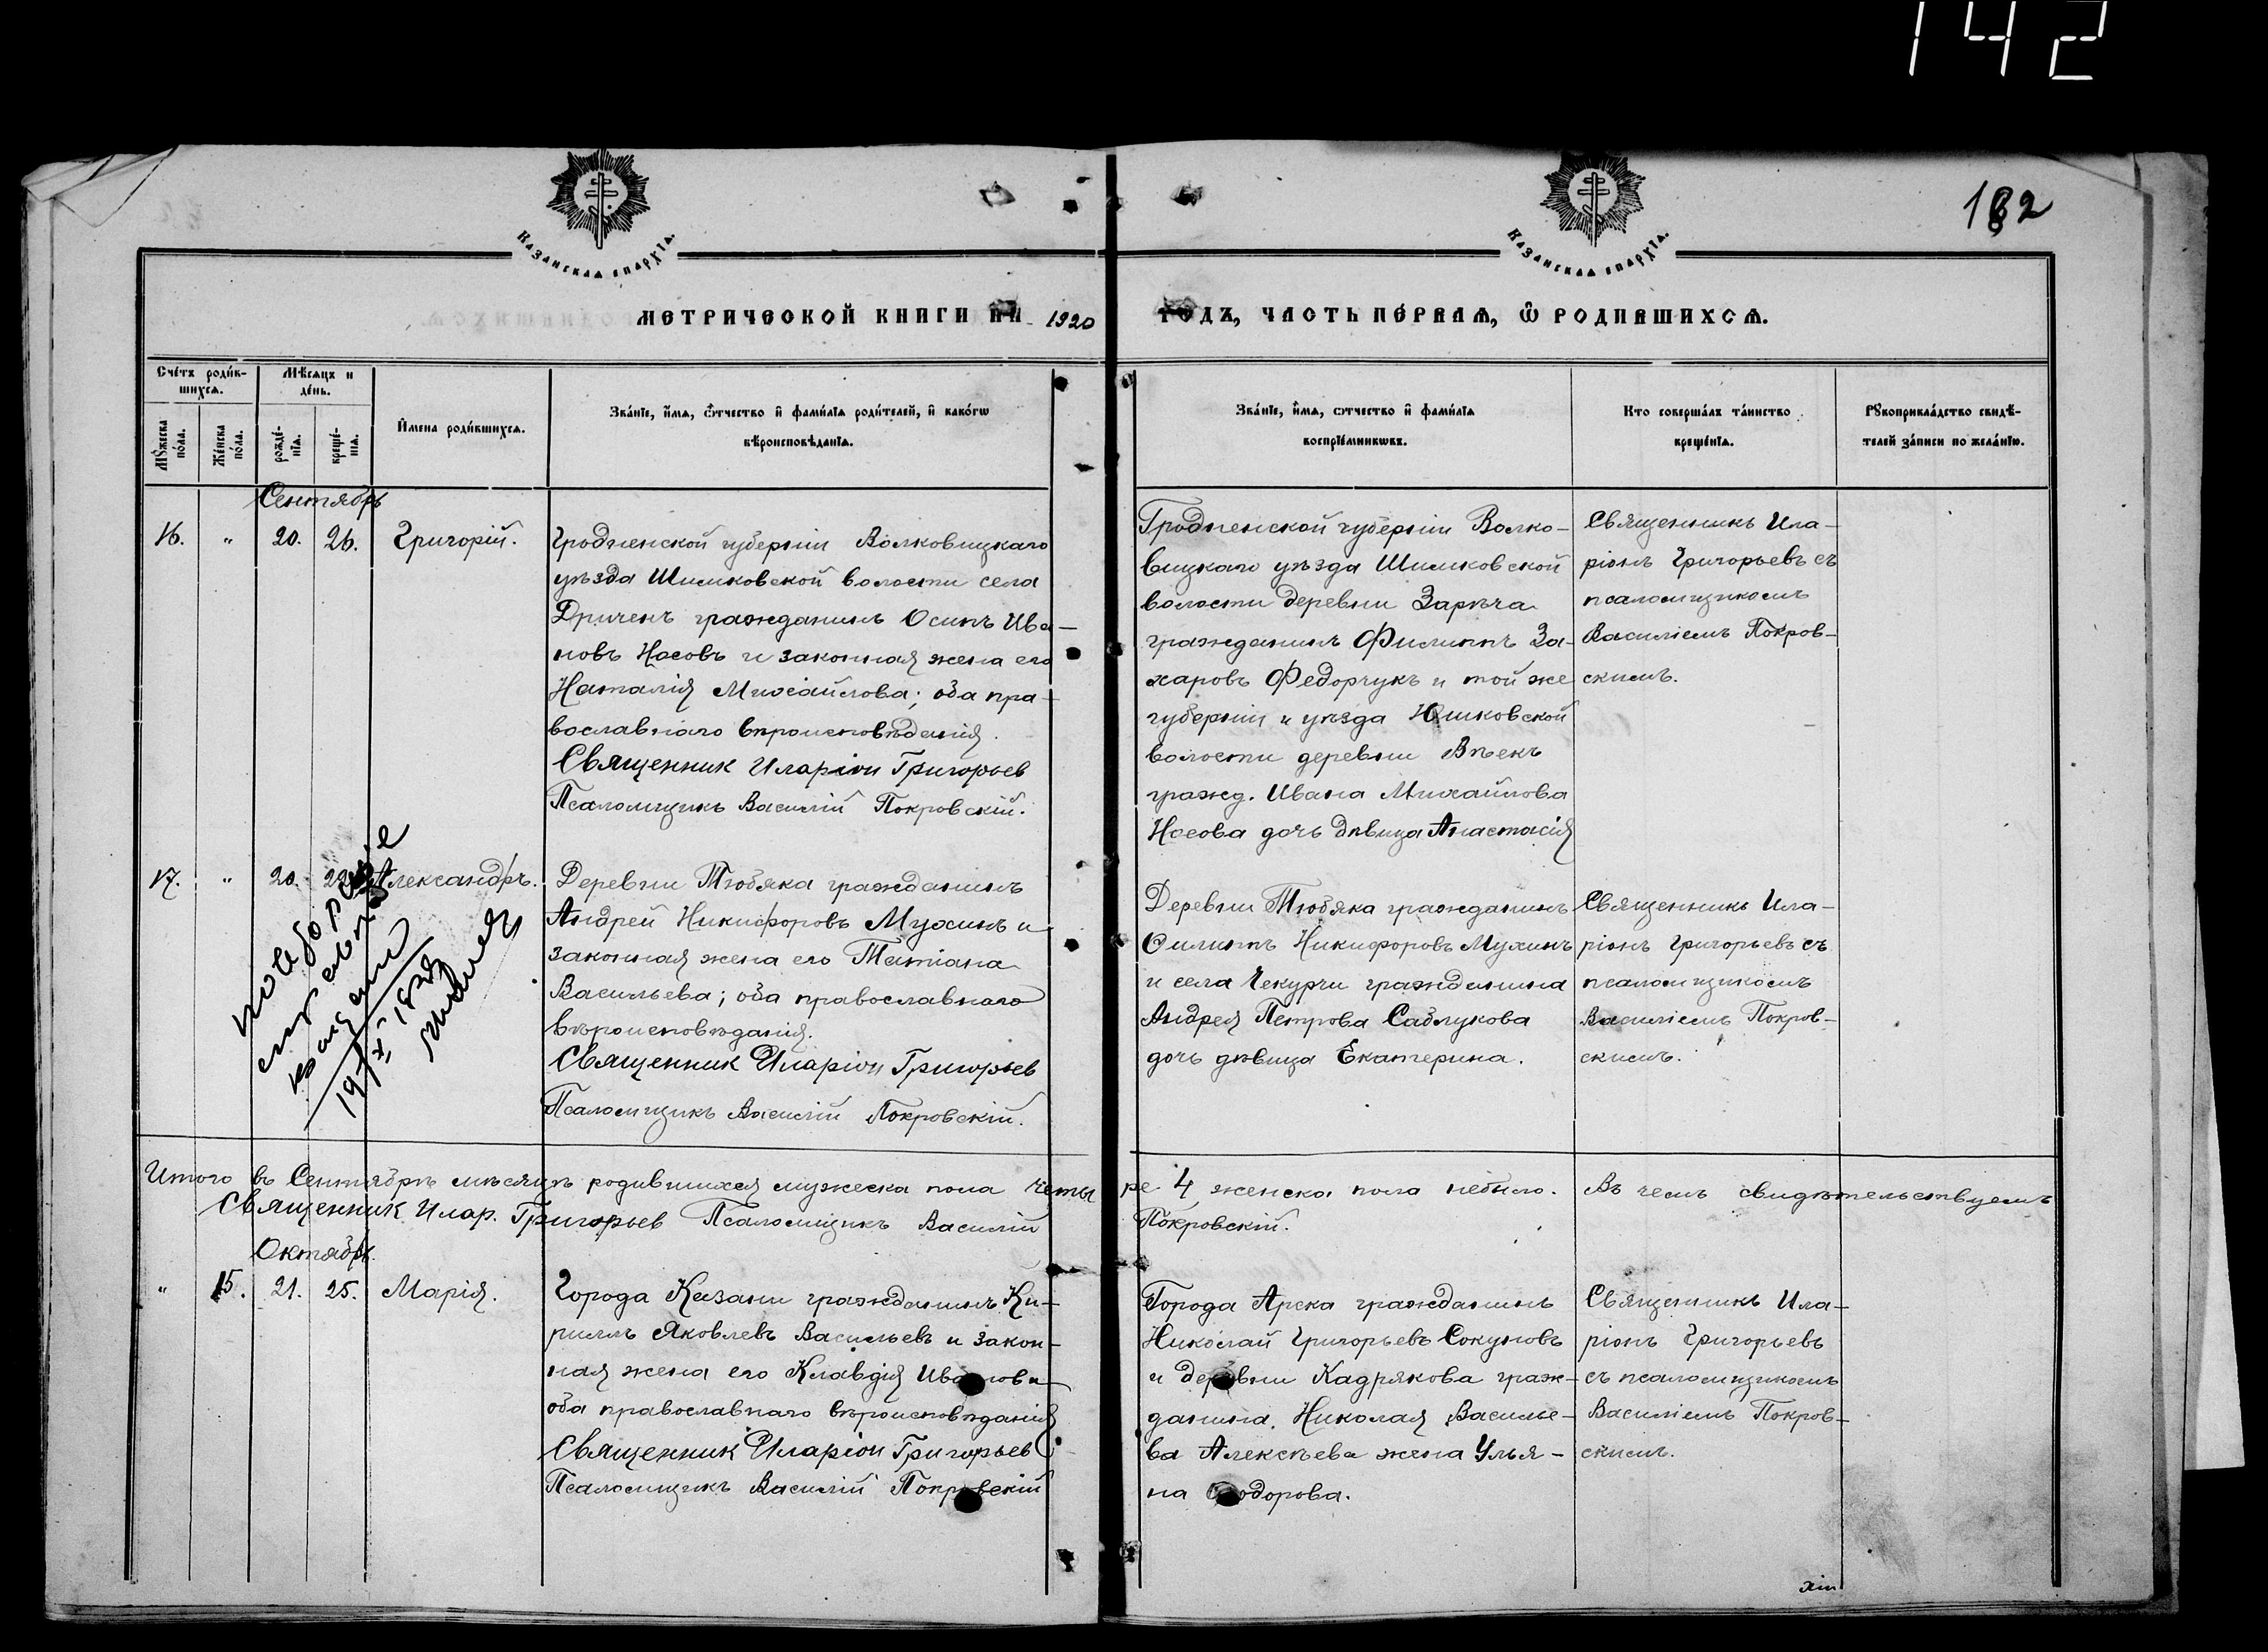 142
182
Казанская епархїа.
Казанская епархїа.
МЕТРИЧЕСКОЙ КНИГИ НА 1920
ГОДЪ, ЧАСТЬ ПЕ́РВАЯ, Ѽ РОДИВШИХСЯ.
Сче́тъ роди́в-
шихся.
Мѣ́сяцъ и
де́нь.
Мꙋ́жеска
по́ла.
Же́нска
по́ла.
рожде́-
нїя.
креще́-
нїя.
Имена роди́вшихся.
Зва́нїе, и́мя, ѻ́тчество и҆ фами́лїя роди́телей, и҆ како́гѡ
вѣроисповѣ́данїя.
Зва́нїе, и́мя, ѻ́тчество и҆ фами́лїя
воспрїе́мникѡвъ.
Кто соверша́лъ та́инство
креще́нїя.
Рꙋкоприкла́дство свидѣ́-
телей за́писи по жела́нїю.
Сентябрь
16. " 20. 26. Григорій.
Гродненской губерніи Волковицкаго
уѣзда Шимковской волости села
Дриченъ гражданинъ Осипъ Ива-
новъ Носовъ и законная жена его
Наталія Михайлова; оба пра-
вославнаго вѣроисповѣданія.
Священник Иларіон Григорьев
Псаломщикъ Василій Покровскій.
Гродненской губерніи Волко-
вицкаго уѣзда Шимковской
волости деревни Зарѣча
гражданинъ Филиппъ За-
харовъ Федорчукъ и той же
губерніи и уѣзда
волости деревни
гражд. Ивана Михайлова
Носова дочь дѣвица Анастасія
Священникъ Ила-
ріонъ Григорьевъ съ
псаломщикомъ
Василіемъ Покров-
скимъ.
17. " 20. Александръ.
Деревни Тюбяка гражданинъ
Андрей Никифоровъ Мухинъ и
законная жена его Татіана
Васильева; оба православнаго
вѣроисповѣданія.
Священник Иларіон Григорьев
Псаломщикъ Василій Покровскій.
Деревни Тюбяка гражданинъ
Филиппъ Никифоровъ Мухинъ
и села Чекурчи гражданина
Андрея Петрова Саблукова
дочь дѣвица Екатерина.
Священникъ Ила-
ріонъ Григорьевъ съ
псаломщикомъ
Василіемъ Покров-
скимъ.
Итого въ Сентябрѣ мѣсяцѣ родившихся мужеска пола четы
ре 4 женска пола небыло. Въ чемъ свидѣтельствуемъ
Священник Илар. Григорьев Псаломщикъ Василій
Покровскій.
Октябрь.
" 15. 21. 25. Марія.
Города Казани гражданинъ Ки-
риллъ Яковлевъ Васильевъ и закон-
ная жена его Клавдія Иванова
оба православнаго вѣроисповѣданія
Священник Иларіон Григорьев
Псаломщикъ Василій Покровскій
Города Арска гражданинъ
Николай Григорьевъ Сокуновъ
и деревни Кадрякова граж-
данина Николая Василье-
ва Алексѣева жена Улья-
на Ѳеодорова.
Священникъ Ила-
ріонъ Григорьевъ
съ псаломщикомъ
Василіемъ Покров-
скимъ.